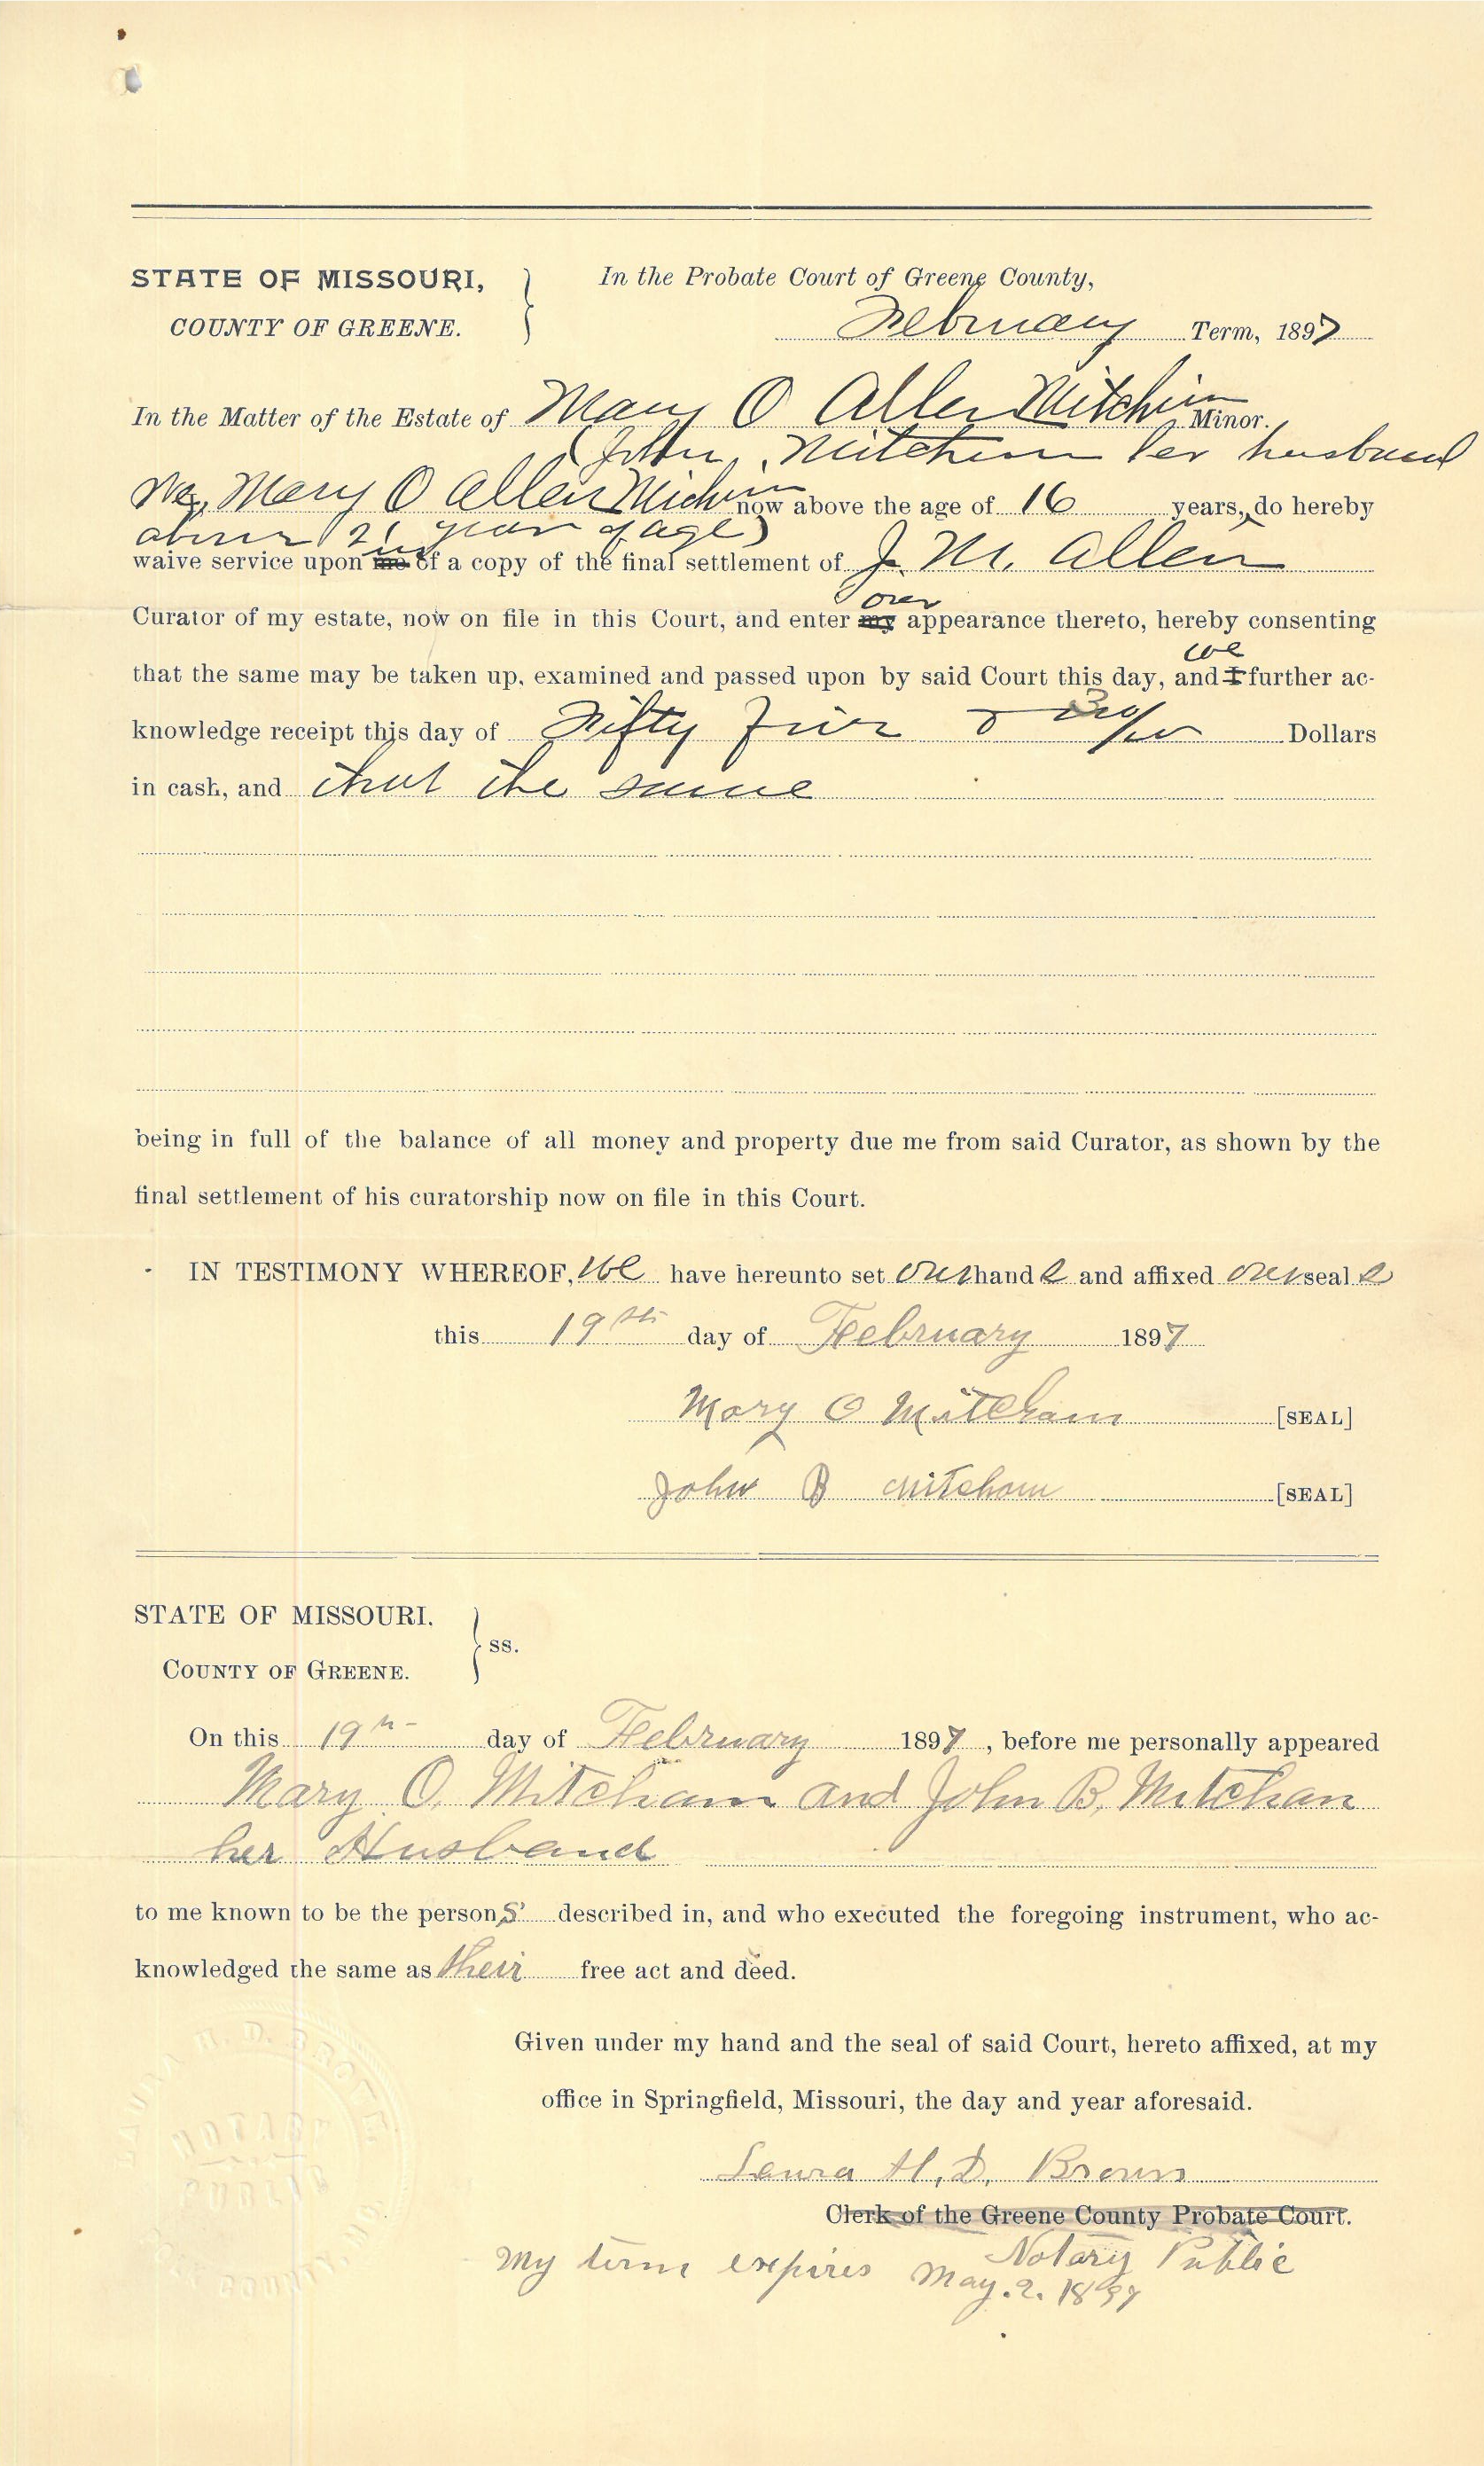 STATE OF MISSOURI, In the Probate Court of Greene County,
COUNTY OF GREENE. February Term, 1897
In the Matter of the Estate of Mary O Allen Mitchim Minor.
(John Mitchim her husband
We, Mary O Allen Michim now above the age of 16 years, do hereby
above 21 years of age)
us
waive service upon me of a copy of the final settlement of J. M. Allen
our
Curator of my estate, now on file in this Court, and enter my appearance thereto, hereby consenting
we
that the same may be taken up, examined and passed upon by said Court this day, and I further ac-
knowledge receipt this day of Fifty Five & 30/100 Dollars
in cash, and that the same
being in full of the balance of all money and property due me from said Curator, as shown by the
final settlement of his curatorship now on file in this Court.
IN TESTIMONY WHEREOF, we have hereunto set our hand s and affixed our seal s
this 19th day of February 1897
Mary O Mitcham [SEAL]
John B Mitcham [SEAL]
STATE OF MISSOURI.
ss.
COUNTY OF GREENE.
On this 19th day of February 1897, before me personally appeared
Mary O. Mitcham and John B. Mitchan
her Husband
to me known to be the persons described in, and who executed the foregoing instrument, who ac-
knowledged the same as their free act and deed.
Given under my hand and the seal of said Court, hereto affixed, at my
office in Springfield, Missouri, the day and year aforesaid.
Laura H. D. Brown
Clerk of the Greene County Probate Court.
Notary Public
My term expires May. 2. 1897
NOTARY
PUBLIC